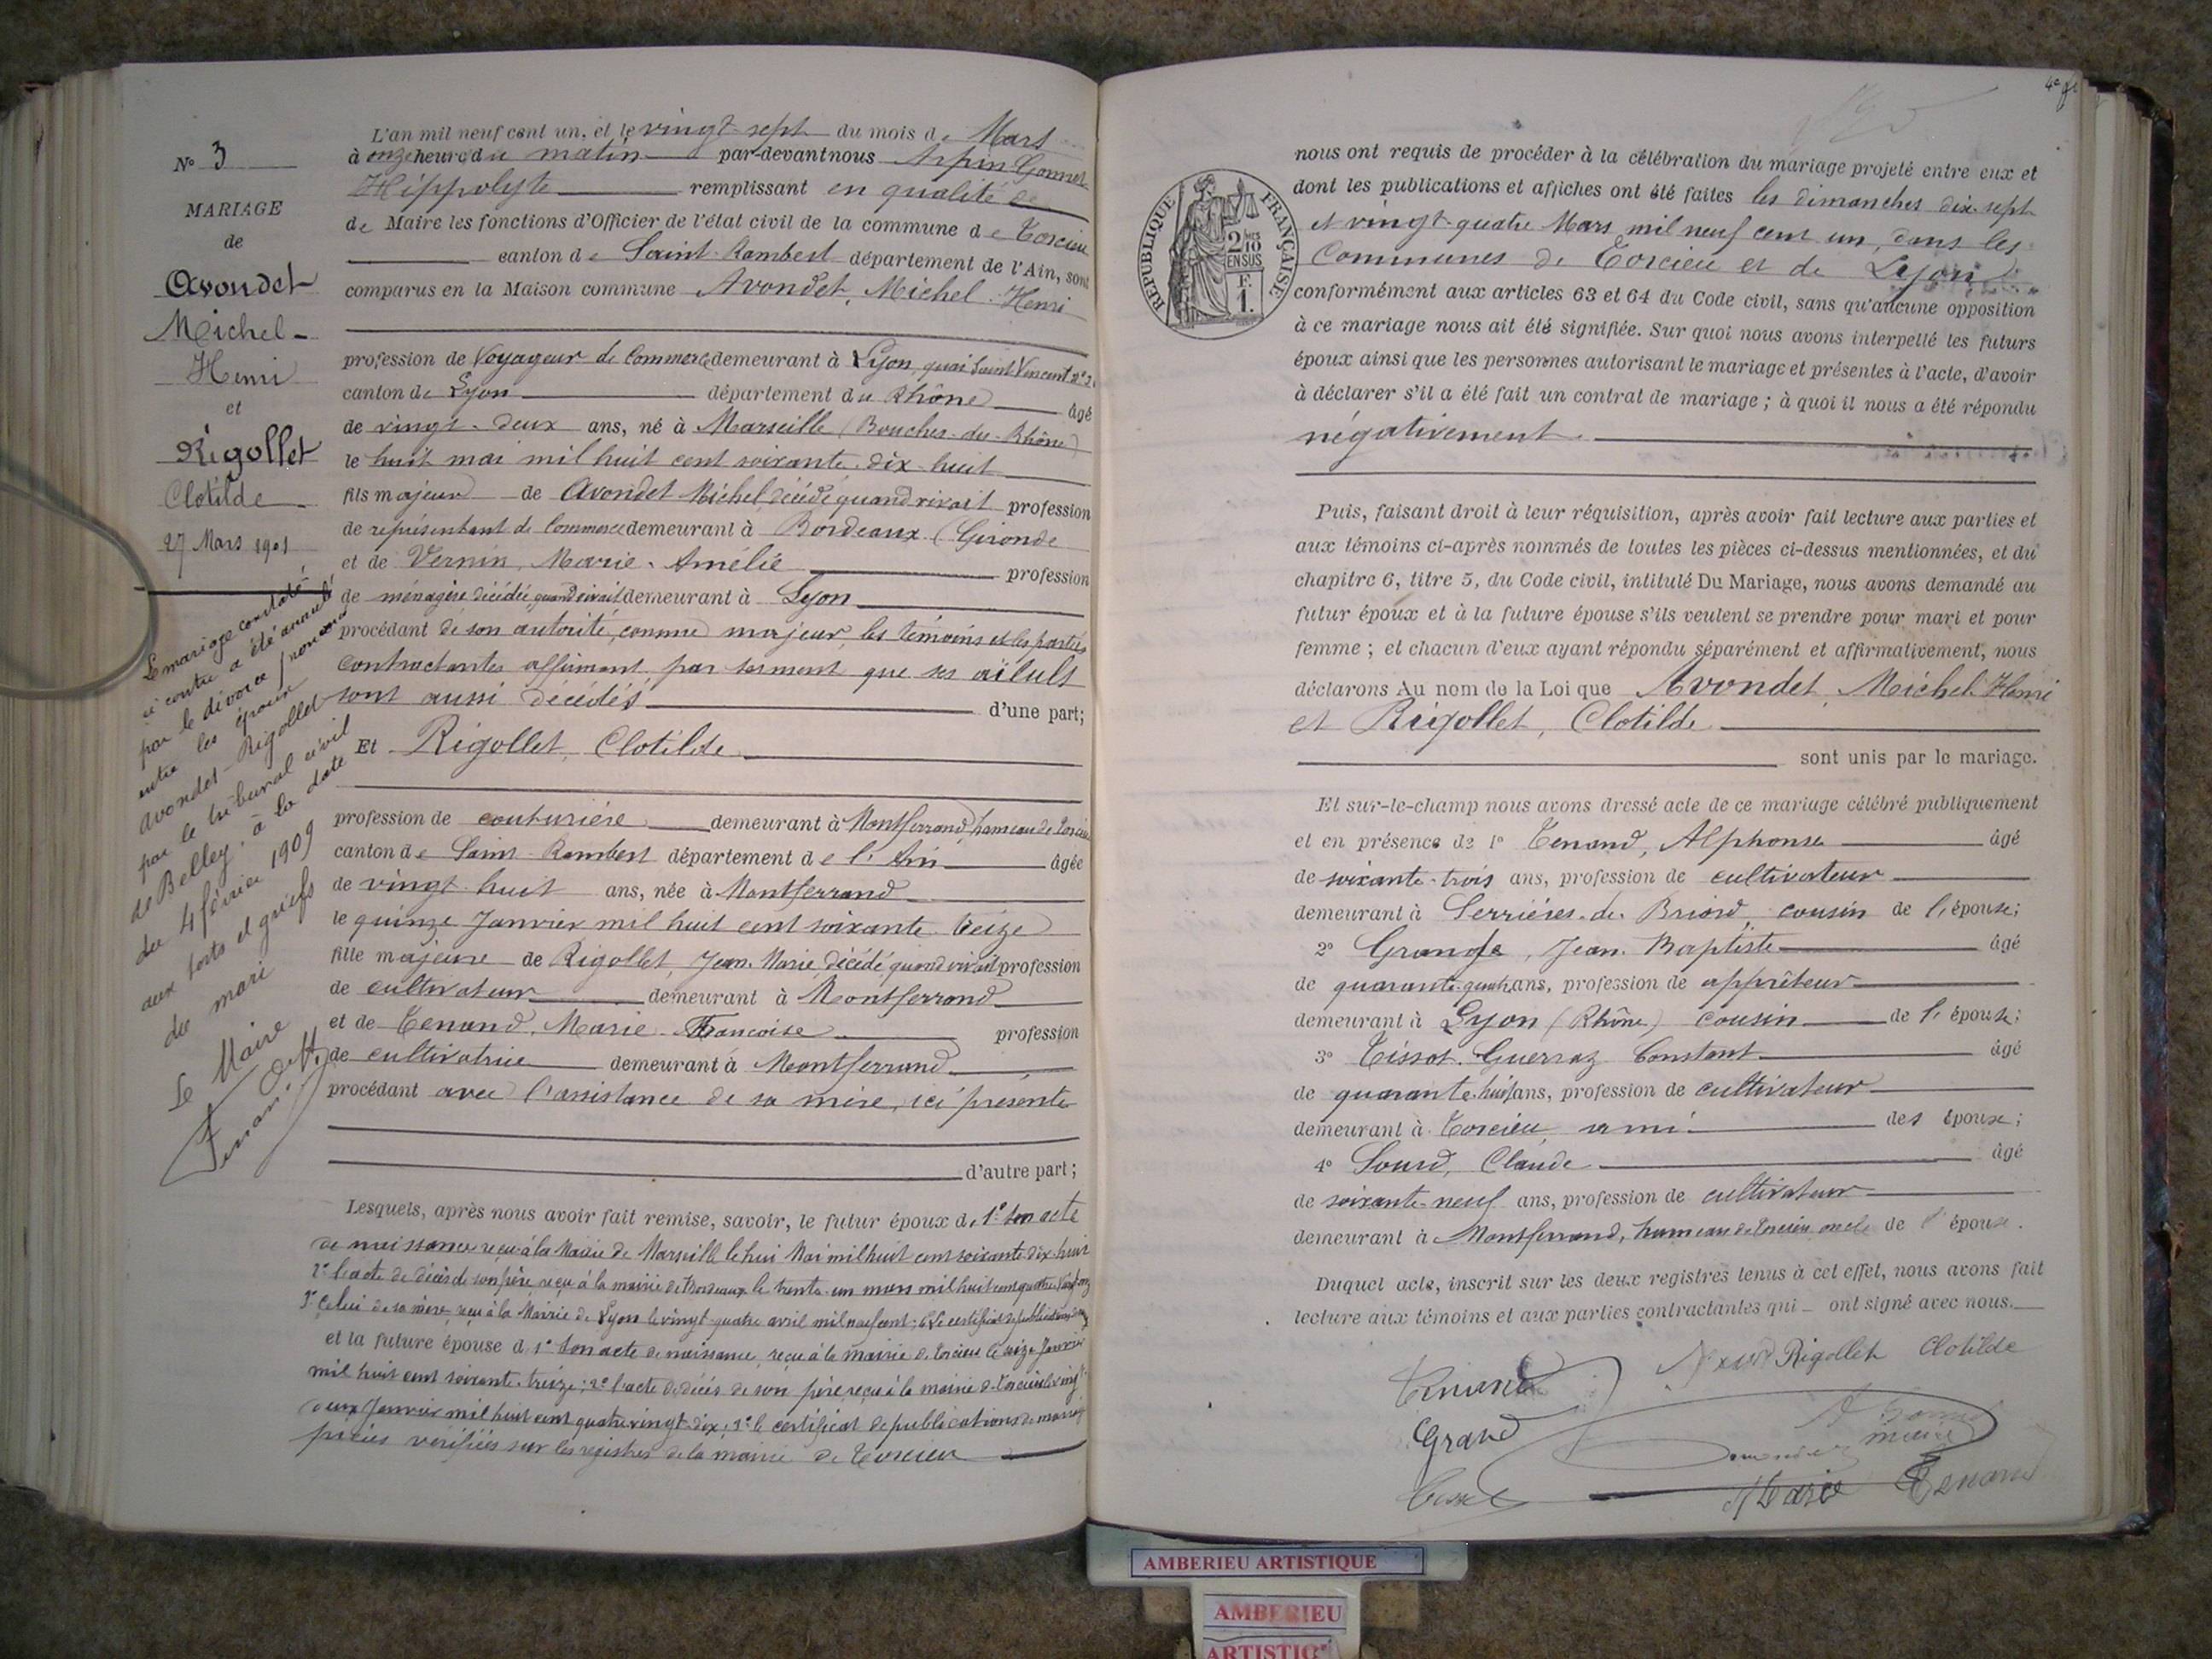 N° 3
MARIAGE
de
Avondet
Michel-
Henri
et
Rigollet
Clotilde
27 Mars 1901
Le mariage constaté
ci contre a été annulé
par le divorce prononcé
entre les époux
Avondet-Rigollet
par le tribunal civil
de Belley, à la date
du 4 février 1909
aux torts et griefs
du mari
Le Maire
L'an mil neuf cent un, et le vingt-sept du mois de Mars
à onze heure du matin par-devant nous Arpin Gonnet
Hippolyte remplissant en qualité de
de Maire les fonctions d'Officier de l'état civil de la commune de Torcieu
canton de Saint-Rambert département de l'Ain, sont
comparus en la Maison commune Avondet, Michel-Henri
profession de Voyageur de Commerce demeurant à Lyon, quai Saint Vincent n°
canton de Lyon département du Rhône âgé
de vingt-deux ans, né à Marseille (Bouches-du-Rhône)
le huit mai mil huit cent soixante-dix-huit
fils majeur de Avondet Michel, décédé quand vivait profession
de représentant de Commerce demeurant à Bordeaux (Gironde
et de Vernin, Marie-Amélie profession
de ménagère décédée, quand vivait demeurant à Lyon
procédant de son autorité, comme majeur, les témoins et les parties
contractantes affirmant par serment que ses aïeuls
sont aussi décédés d'une part;
Et Rigollet, Clotilde
profession de couturière demeurant à Montferrand, hameau de Torcieu
canton de Saint-Rambert département de l'Ain âgée
de vingt-huit ans, née à Montferrand
le quinze Janvier mil huit cent soixante-treize
fille majeure de Rigollet, Jean-Marie, décédé quand vivait profession
de cultivateur demeurant à Montferrand
et de Tenand, Marie-Françoise profession
de cultivatrice demeurant à Montferrand
procédant avec l'assistance de sa mère, ici présente
d'autre part;
Lesquels, après nous avoir fait remise, savoir, le futur époux de 1° son acte
de naissance reçu à la Mairie de Marseille le huit Mai mil huit cent soixante-dix-huit
2° l'acte de décès de son père, reçu à la mairie de Bordeaux le trente-un mars mil huit cent quatre-vingt-onze
3° Celui de sa mère reçu à la Mairie de Lyon le vingt-quatre avril mil neuf cent; 4° Le certificat de publications
et la future épouse d 1° son acte de naissance, reçu à la mairie de Torcieu le seize Janvier
mil huit cent soixante-treize; 2° l'acte de décès de son père reçu à la mairie de Torcieu le vingt-
deux Janvier mil huit cent quatre vingt-dix; 3° le certificat de publications de mariage
pièces vérifiées sur les registres de la mairie de Torcieu
4e
RÉPUBLIQUE FRANÇAISE
2 10mes
EN SUS
F.
1.
nous ont requis de procéder à la célébration du mariage projeté entre eux et
dont les publications et affiches ont été faites les dimanches dix-sept
et vingt-quatre Mars mil neuf cent un, dans les
Communes de Torcieu et de Lyon
conformément aux articles 63 et 64 du Code civil, sans qu'aucune opposition
à ce mariage nous ait été signifiée. Sur quoi nous avons interpellé les futurs
époux ainsi que les personnes autorisant le mariage et présentes à l'acte, d'avoir
à déclarer s'il a été fait un contrat de mariage; à quoi il nous a été répondu
négativement.
Puis, faisant droit à leur réquisition, après avoir fait lecture aux parties et
aux témoins ci-après nommés de toutes les pièces ci-dessus mentionnées, et du
chapitre 6, titre 5, du Code civil, intitulé Du Mariage, nous avons demandé au
futur époux et à la future épouse s'ils veulent se prendre pour mari et pour
femme; et chacun d'eux ayant répondu séparément et affirmativement, nous
déclarons Au nom de la Loi que Avondet, Michel-Henri
et Rigollet, Clotilde
sont unis par le mariage.
Et sur-le-champ nous avons dressé acte de ce mariage célébré publiquement
et en présence de 1° Tenand, Alphonse âgé
de soixante-trois ans, profession de cultivateur
demeurant à Serrières-de-Briord, cousin de l'épouse;
2° Grande, Jean-Baptiste âgé
de quarante-quatre ans, profession de apprêteur
demeurant à Lyon (Rhône) cousin de l'épouse;
3° Tissot-Guerraz Constant âgé
de quarante-huit ans, profession de cultivateur
demeurant à Torcieu, ami des époux;
4° Sourd, Claude âgé
de soixante-neuf ans, profession de cultivateur
demeurant à Montferrand, hameau de Torcieu, oncle de l'épouse.
Duquel acte, inscrit sur les deux registres tenus à cet effet, nous avons fait
lecture aux témoins et aux parties contractantes qui ont signé avec nous.
Rigollet Clotilde
Tenand
Grand
Tissot
Marie Tenand
AMBERIEU ARTISTIQUE
AMBERIEU
ARTISTIQ